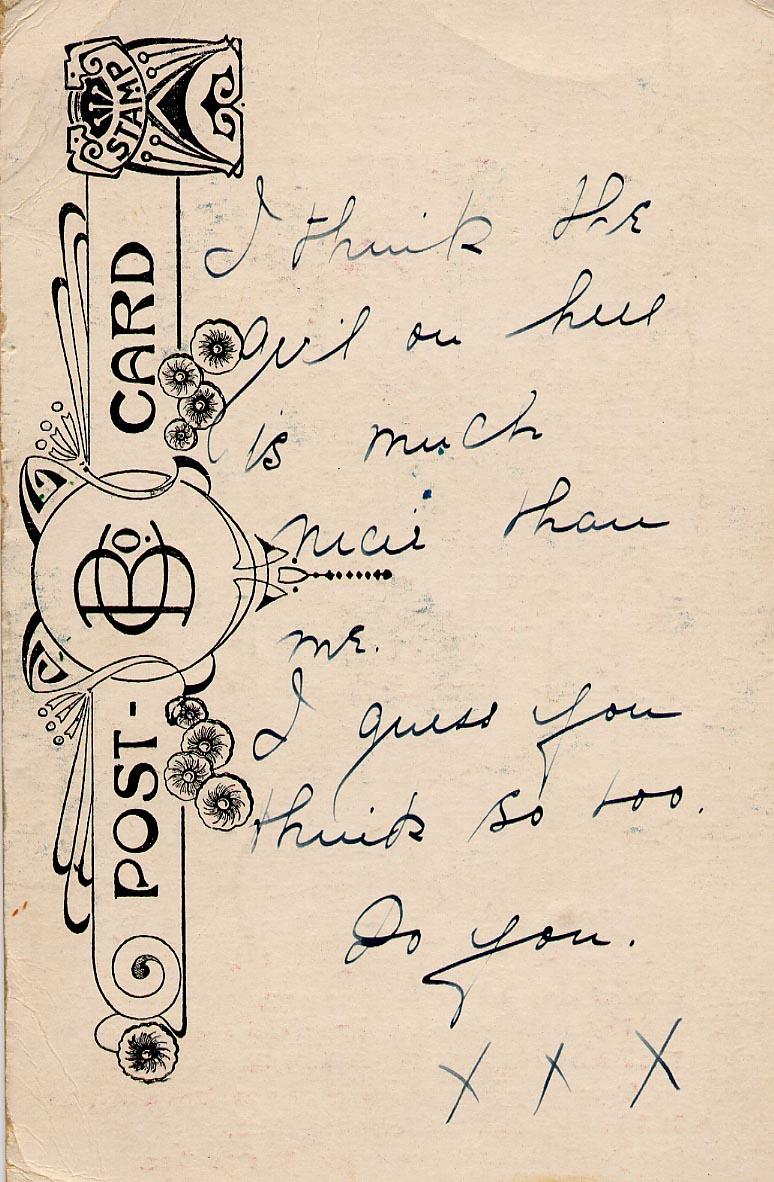 STAMP
POST-CARD
I think the
girl on here
is much
nicer than
me.
I guess you
think so too.
Do you.
X X X